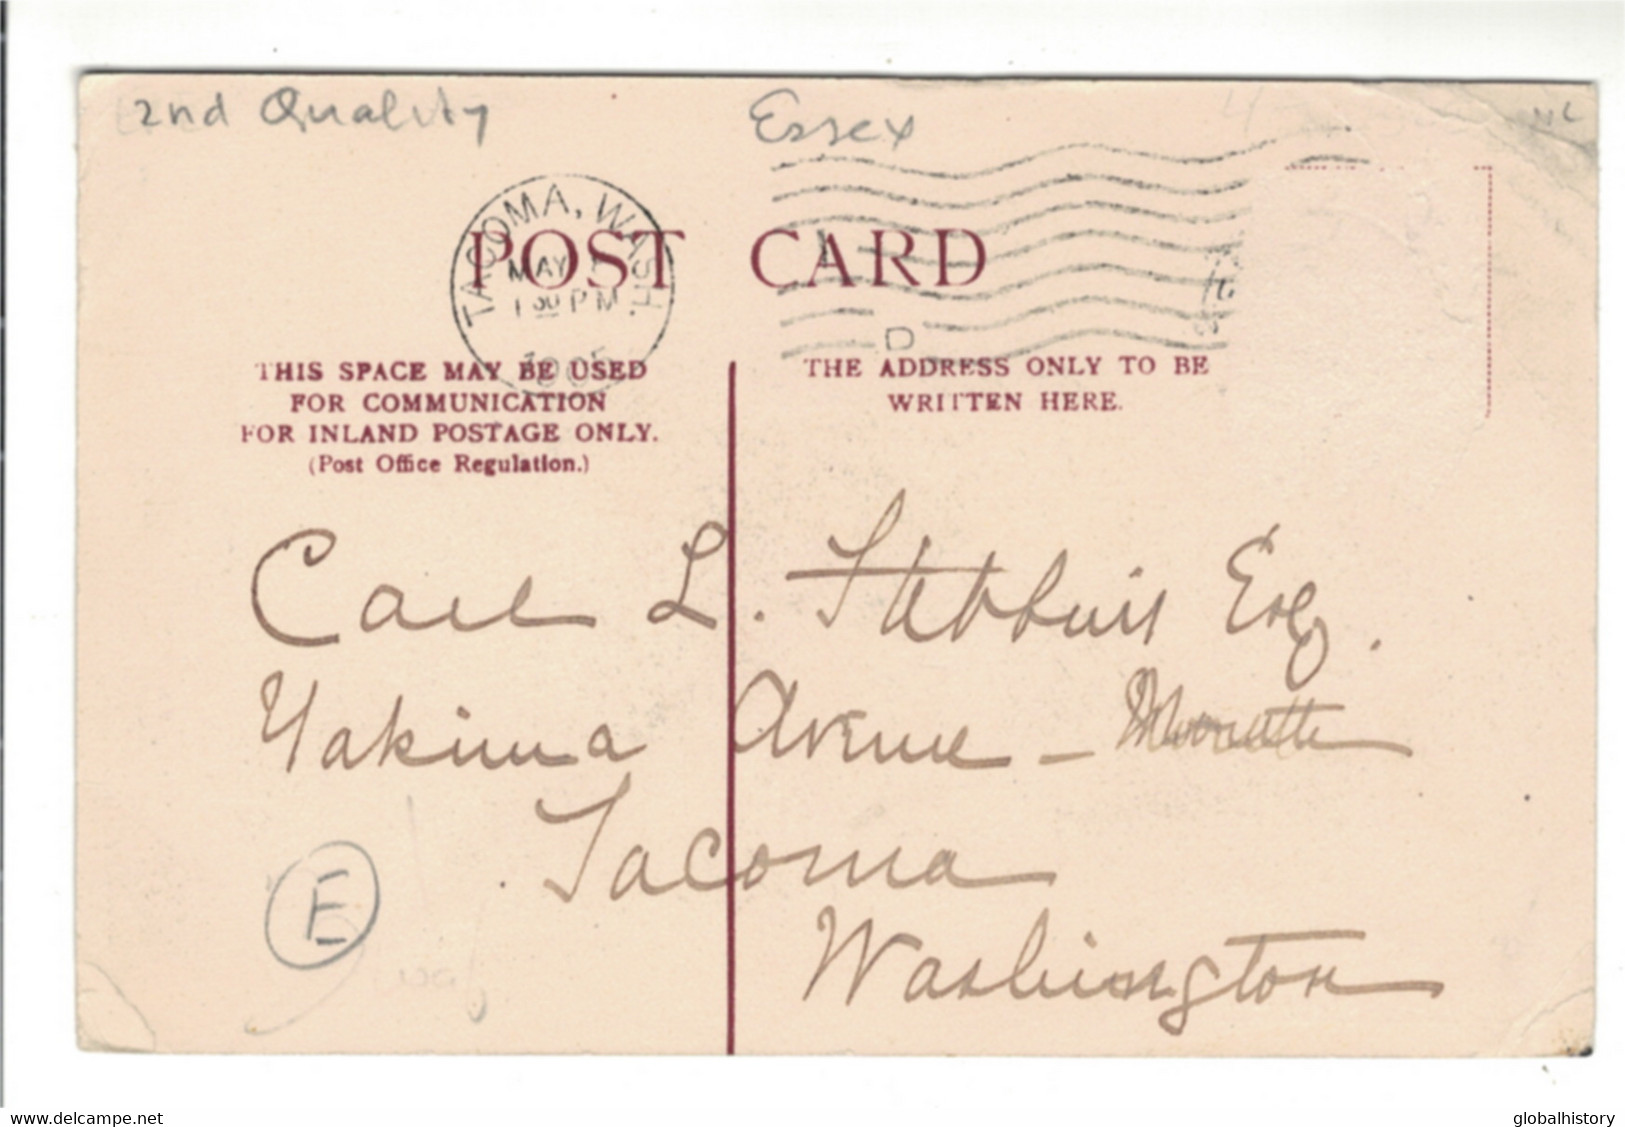 2nd Quality
Essex
TACOMA, WASH.
MAY
1 30 PM
1905
D
POST CARD
THIS SPACE MAY BE USED
FOR COMMUNICATION
FOR INLAND POSTAGE ONLY.
(Post Office Regulation.)
THE ADDRESS ONLY TO BE
WRITTEN HERE.
Carl L. Stebbins Esq.
Yakima Avenue –
Tacoma
Washington
E
www.delcampe.net
globalhistory